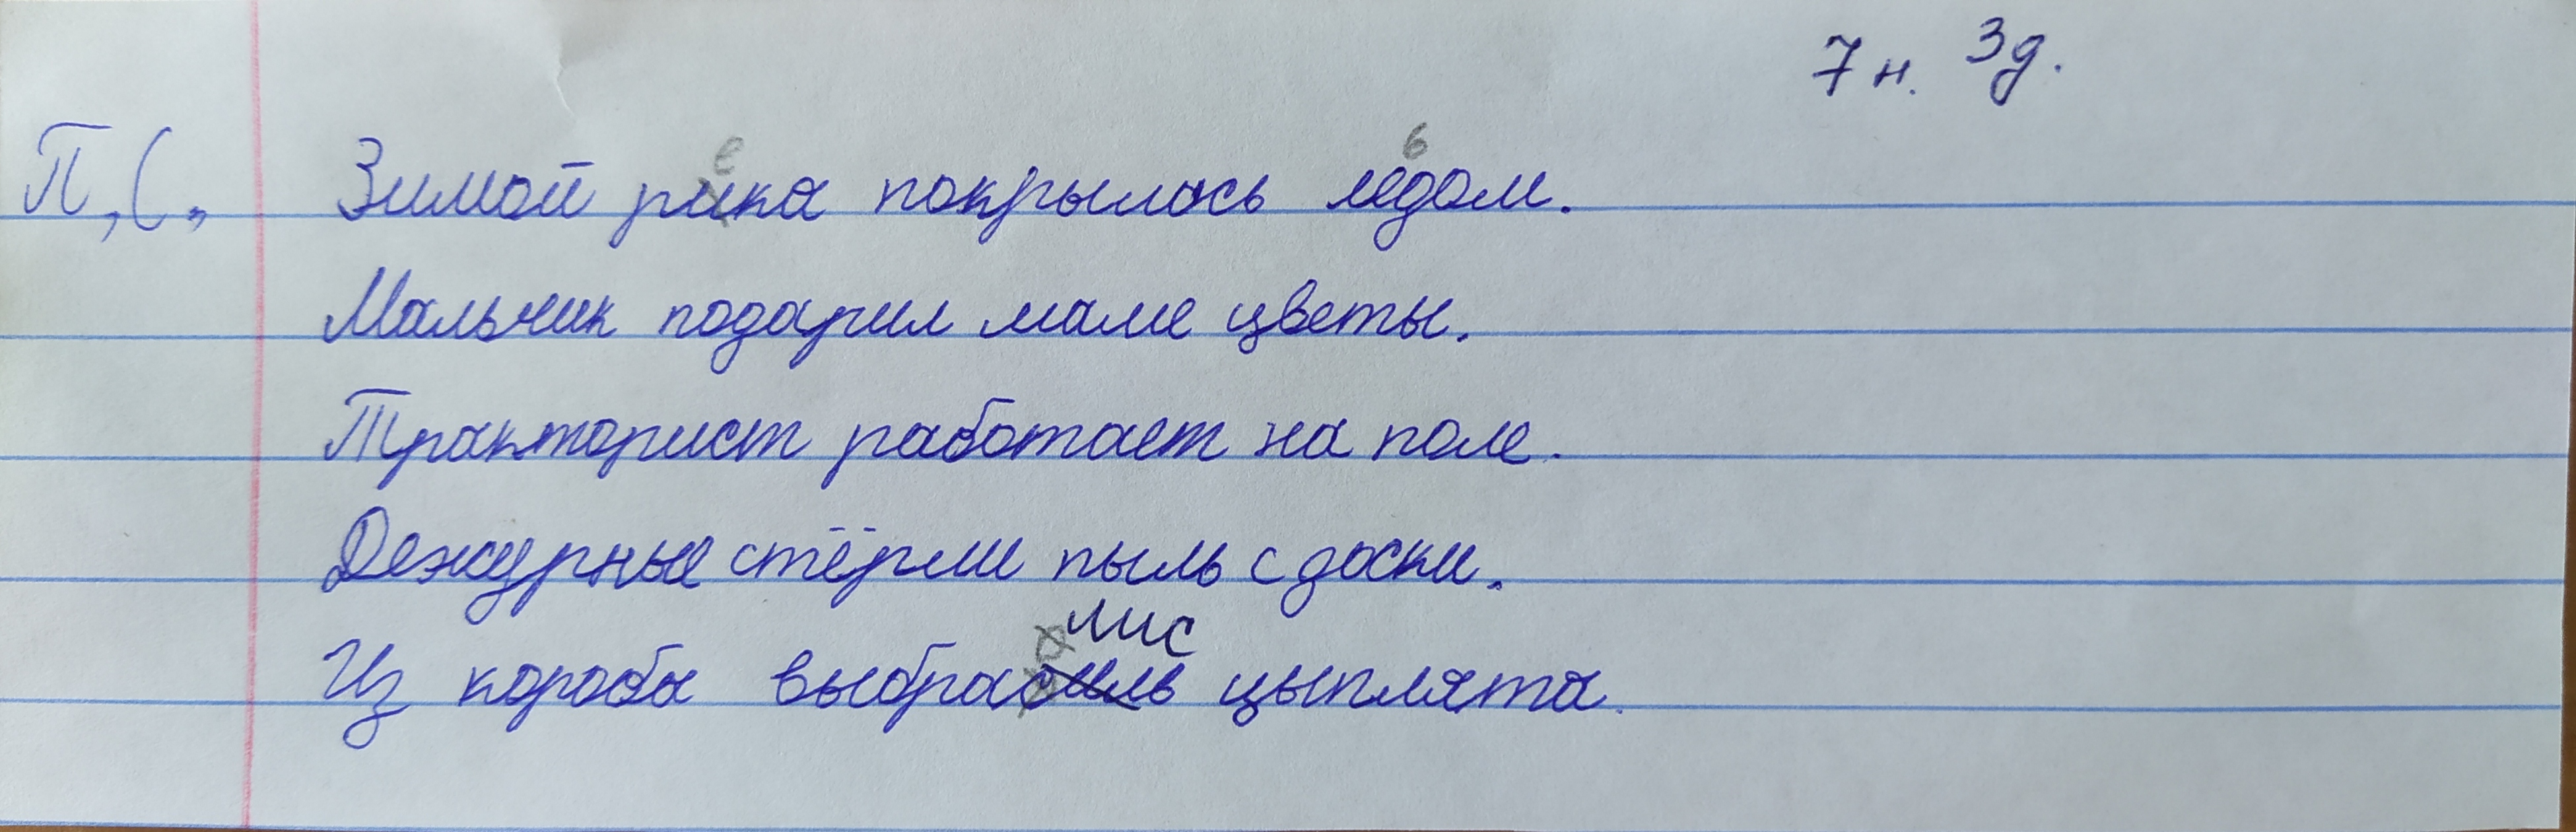 7 н. 3 д.
П, С, Зимой рика покрылась лёдом.
Мальчик подарил маме цветы.
Тракторист работает на поле.
Дежурные стёрли пыль с доски.
лис
Из короба выбраоиль цыплята.